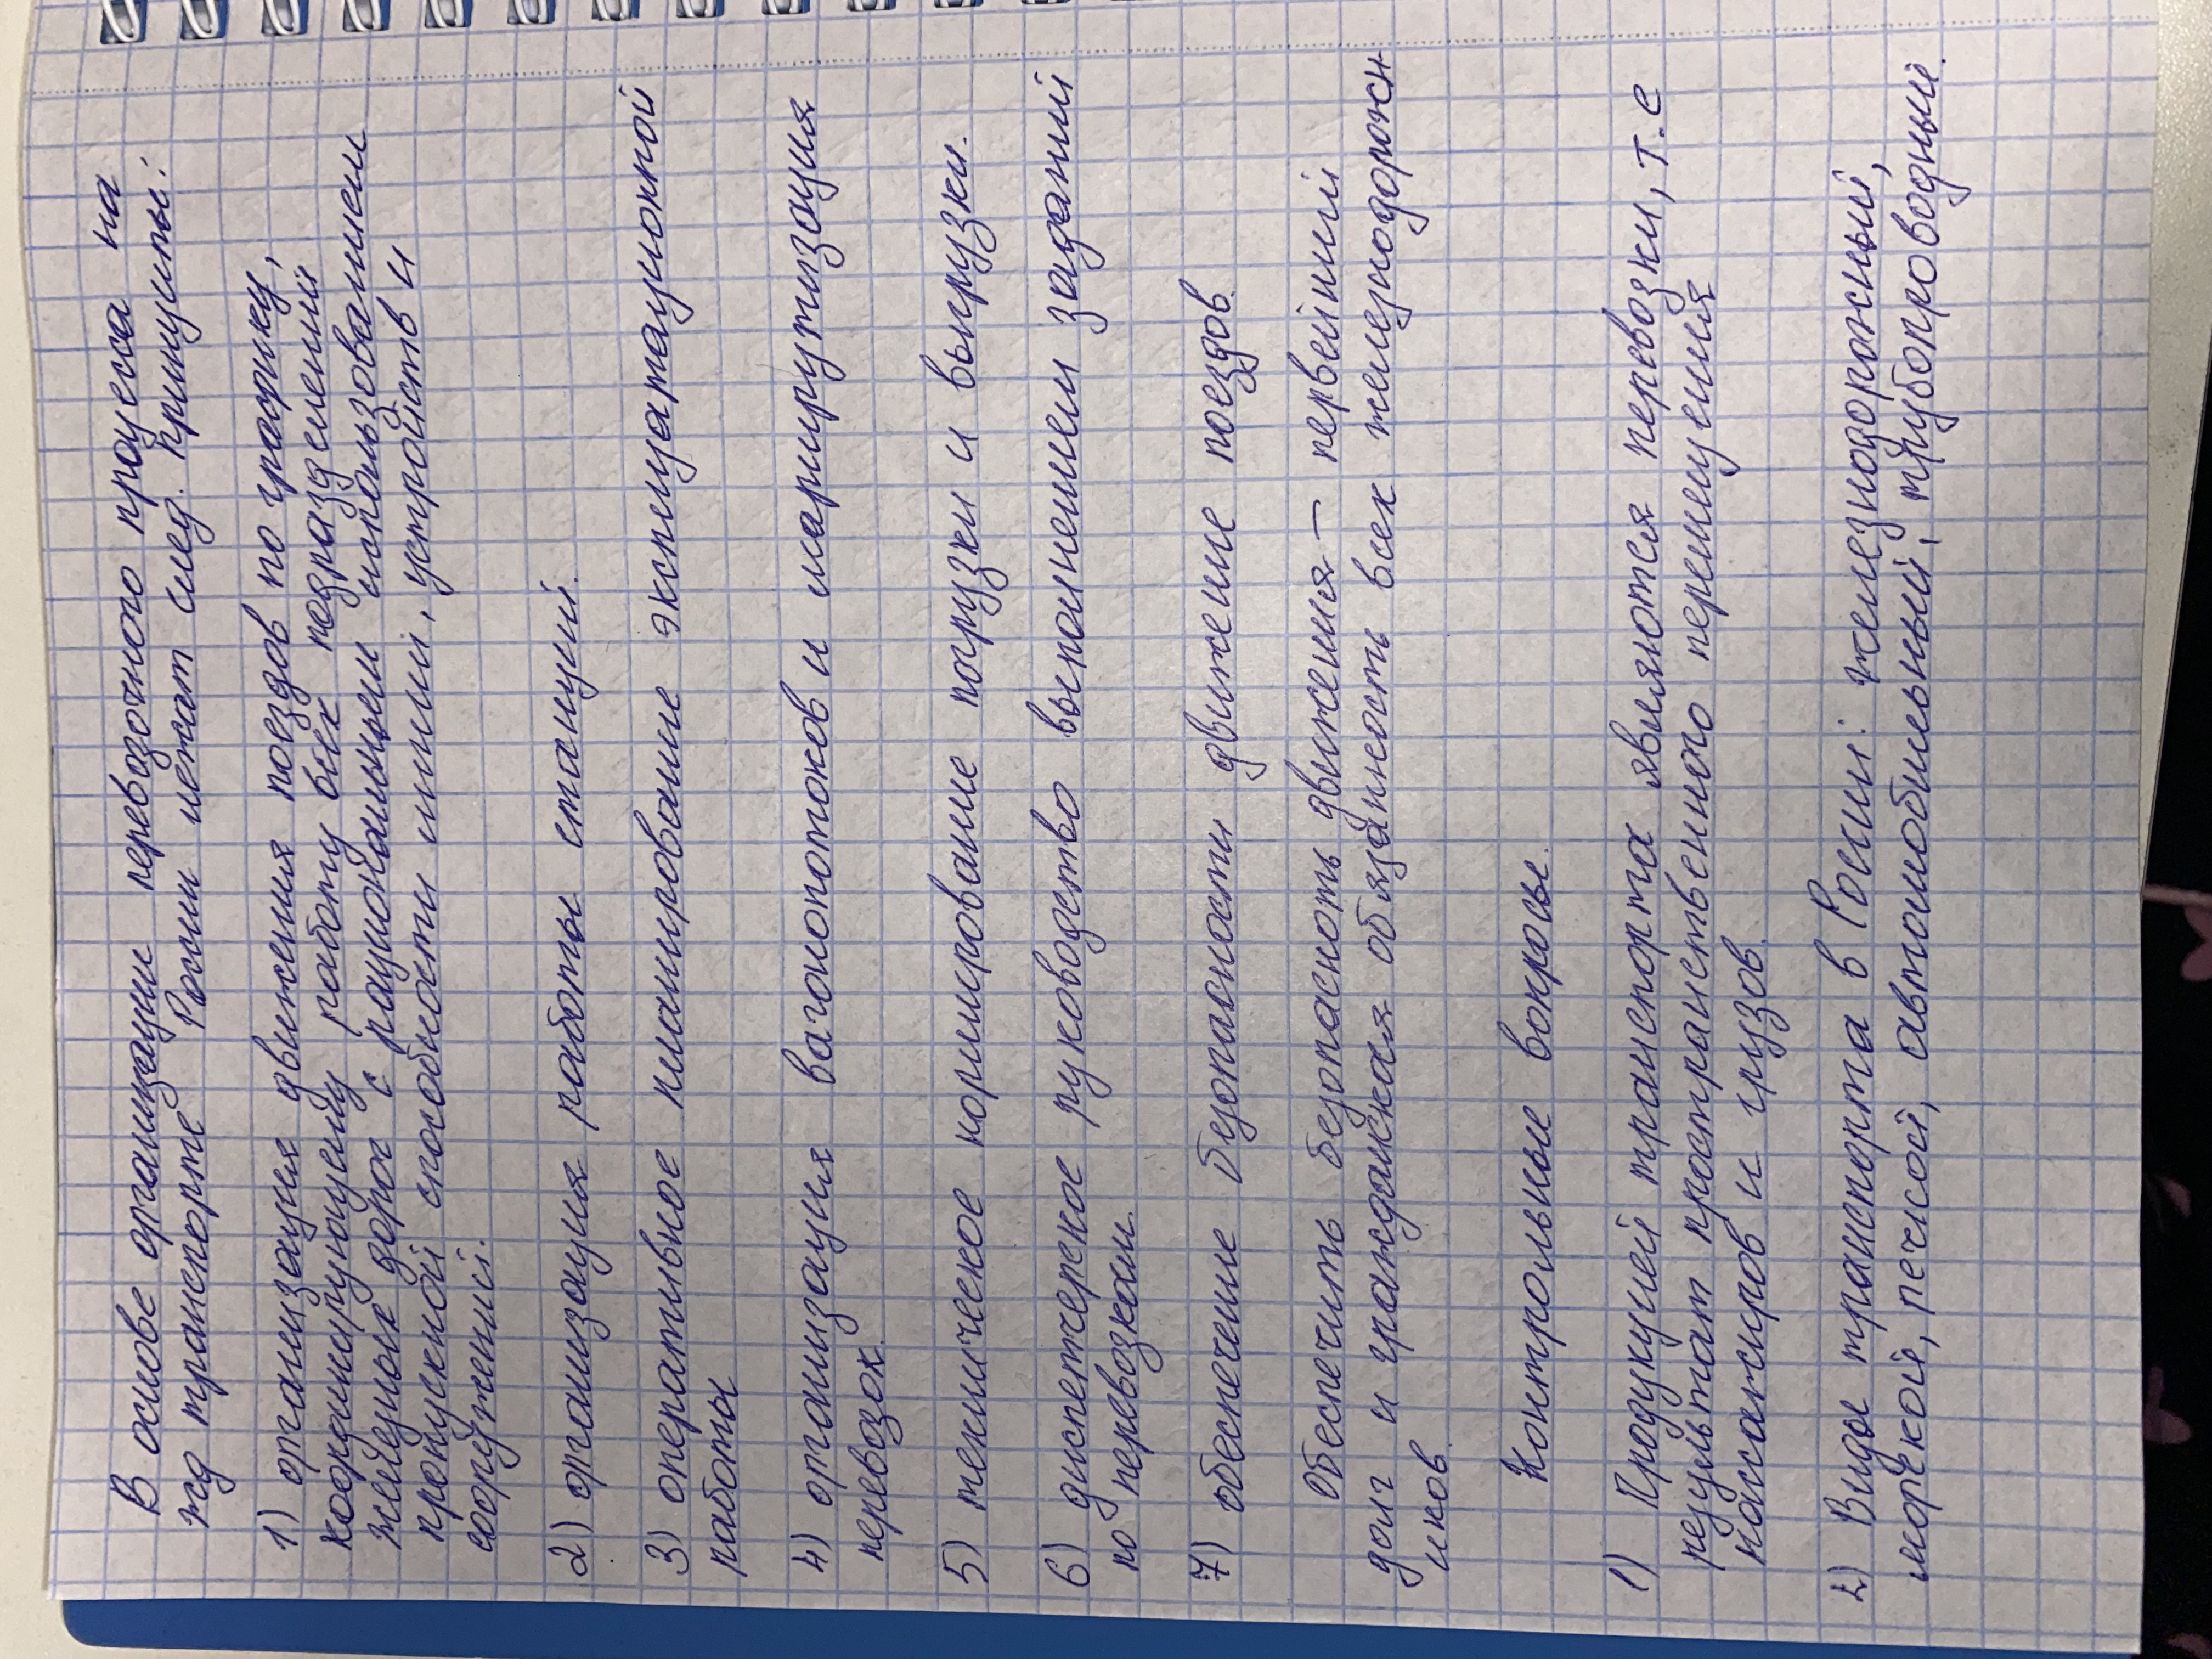 В основе организации перевозочного процесса на
жд транспорте России лежат след. принципы:
1) организация движения поездов по графику,
координирующему работу всех подразделений
железных дорог с рациональным использованием
пропускной способности линий, устройств и
сооружений.
2) организация работы станций.
3) оперативное планирование эксплуатационной
работы
4) организация вагонопотоков и маршрутизация
перевозок.
5) техническое нормирование погрузки и выгрузки.
6) диспетчерское руководство выполнением заданий
по перевозкам.
7) обеспечение безопасности движение поездов.
Обеспечить безопасность движения – первейший
долг и гражданская обязанность всех железнодорожн
иков.
Контрольные вопросы.
1) Продукцией транспорта являются перевозки, т.е
результат пространственного перемещения
пассажиров и грузов.
2) Виды транспорта в России: железнодорожный,
морской, речной, автомобильный, трубопроводный.